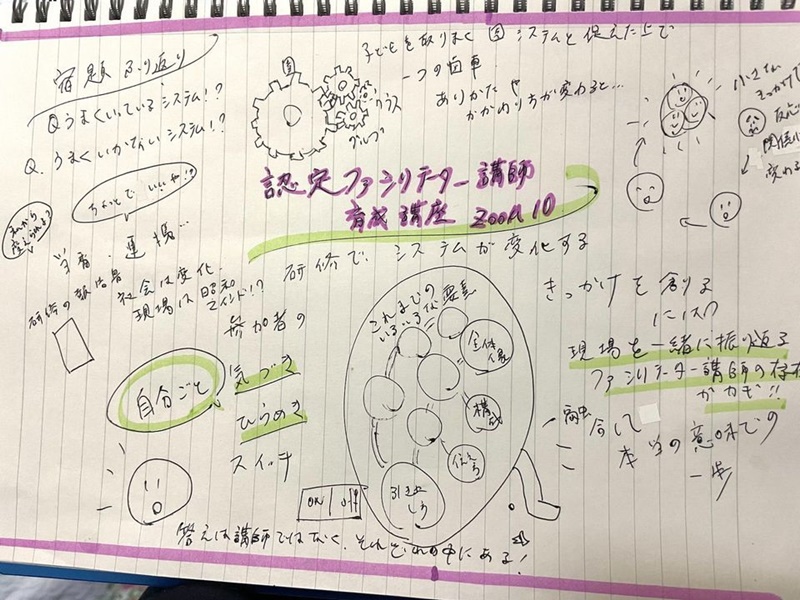 宿題ふり返り
Qうまくいっているシステム!?
Q.うまくいかないシステム!?
ちょっとで いいや!?
園
クラス
グループ
子どもを取りまく 園 システムと捉えた上で
一つの歯車
ありかた や
かかわり方が変わると…
小さな
きっかけで
反応
関係
変わる
認定ファシリテーター講師
育成講座 ZOOM 10
研修で、システムが変化する
きっかけを創る
運場…
研修の報告書
社会は変化
現場は昭和
マインド!?
参加者の
自分ごと
気づき
ひらめき
スイッチ
これまでの
いろいろな 要素
全体像
構成
引き出し
ON / off
現場を一緒に振り返る
ファシリテーター講師の存在
がカギ!!
融合して
本当の意味での
一歩
答えは講師ではなく、それぞれの中にある!